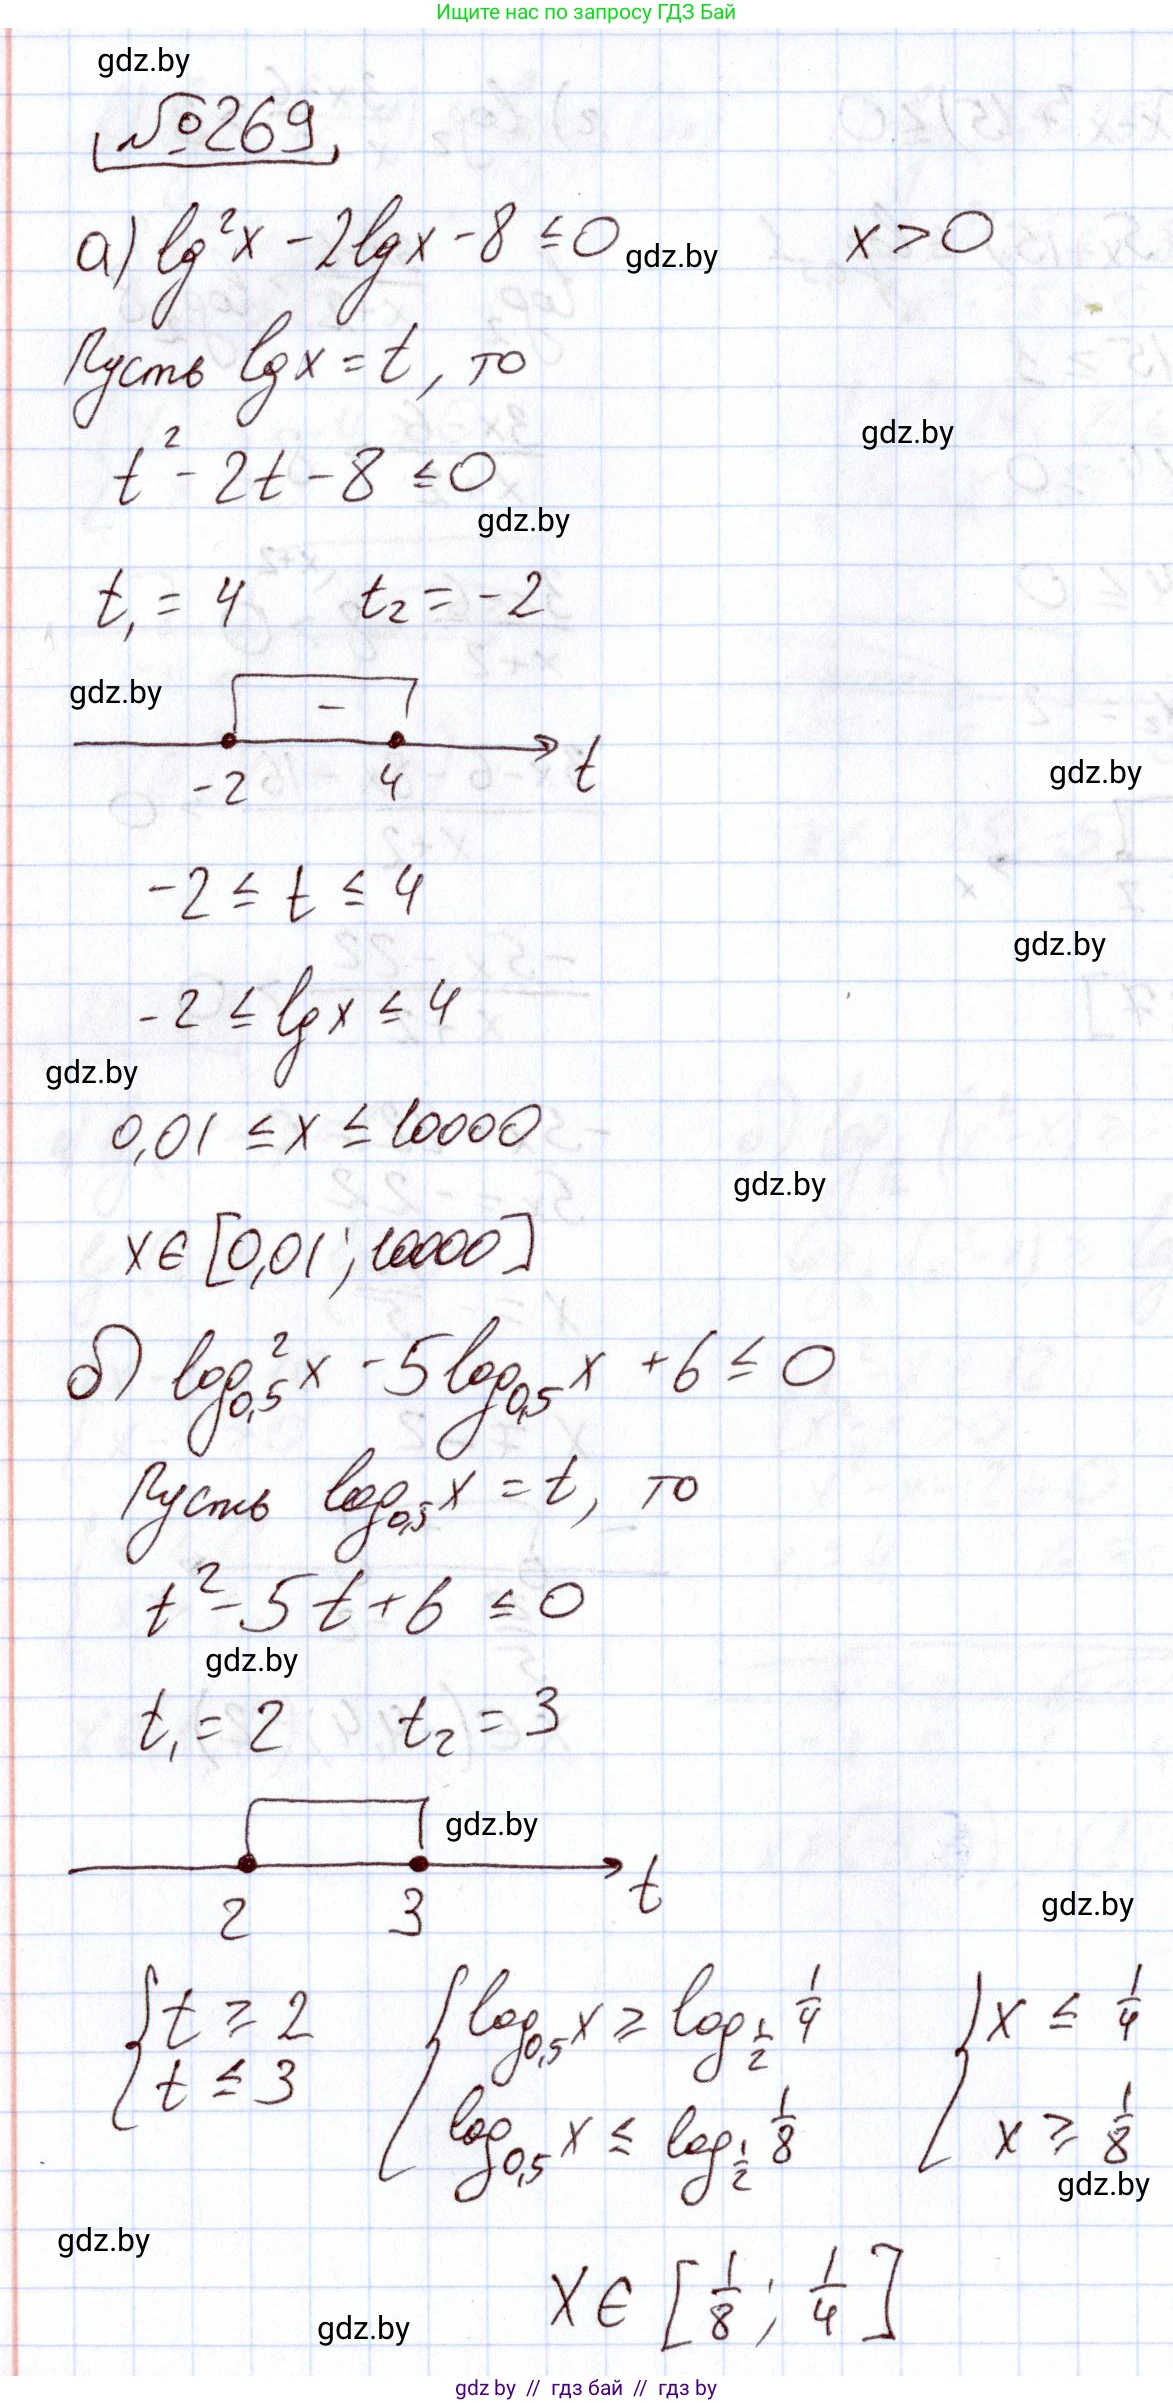 Ищите нас по запросу ГДЗ Бай
gdz.by
№269
а) lg²x - 2lgx - 8 ≤ 0 gdz.by x > 0
Пусть lgx = t, то
gdz.by
t² - 2t - 8 ≤ 0
gdz.by
t₁ = 4 t₂ = -2
gdz.by
-
-2 4 t
gdz.by
-2 ≤ t ≤ 4
gdz.by
-2 ≤ lgx ≤ 4
gdz.by
0,01 ≤ x ≤ 10000
gdz.by
x ∈ [0,01; 10000]
б) log²₀,₅x - 5log₀,₅x + 6 ≤ 0
Пусть log₀,₅x = t, то
t² - 5t + 6 ≤ 0
gdz.by
t₁ = 2 t₂ = 3
gdz.by
2 3 t
gdz.by
{ t ≥ 2 { log₀,₅x ≥ log_{1/2} 1/4 { x ≤ 1/4
t ≤ 3 log₀,₅x ≤ log_{1/2} 1/8 x ≥ 1/8
gdz.by
gdz.by
x ∈ [1/8; 1/4]
gdz.by
gdz by // гдз бай // гдз by